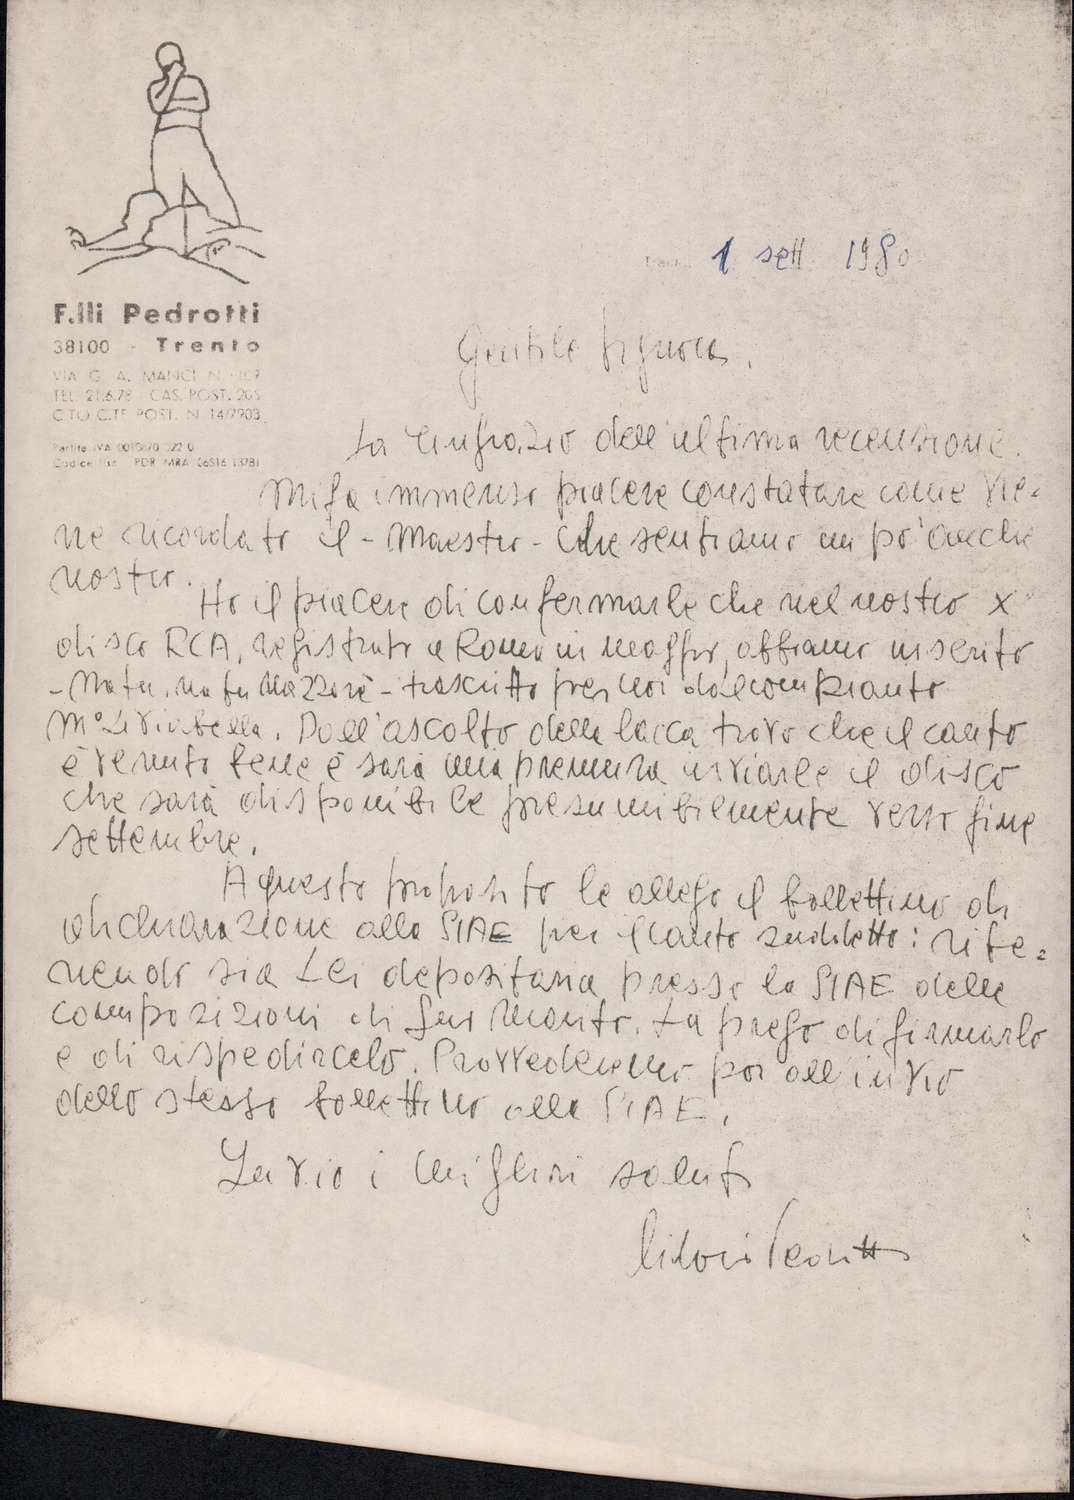 F.lli Pedrotti
38100 - Trento
VIA G. A. MANCI N. 109
TEL. 21.6.78 - CAS. POST. 205
C.TO C.TE POST. N. 14/7903
Partita IVA 0010870 022 0
Codice fisc. PDR MRA 06S16 L378I
Trento, 1 sett 1980
Gentile Signora,
La ringrazio dell'ultima recensione.
Mi fa immenso piacere constatare come vie=
ne ricordato il - Maestro - che sentiamo un po' anche
nostro.
Ho il piacere di confermarle che nel nostro X°
disco RCA, registrato a Roma in maggio, abbiamo inserito
- Matu, matu Mazzorè - trascritto per noi dal compianto
M° Liviabella. Dall'ascolto della lacca trovo che il canto
è venuto bene e sarà una premura inviarle il disco
che sarà disponibile presumibilmente verso fine
settembre.
A questo proposito le allego il bollettino di
dichiarazione alla SIAE per il canto suddetto: rite=
nendo sia Lei depositaria presso la SIAE delle
composizioni di Suo Marito. La prego di firmarlo
e di rispedircelo. Provvederemo poi all'invio
dello stesso bollettino alla SIAE.
Le invio i migliori saluti
Silvio Pedrotti